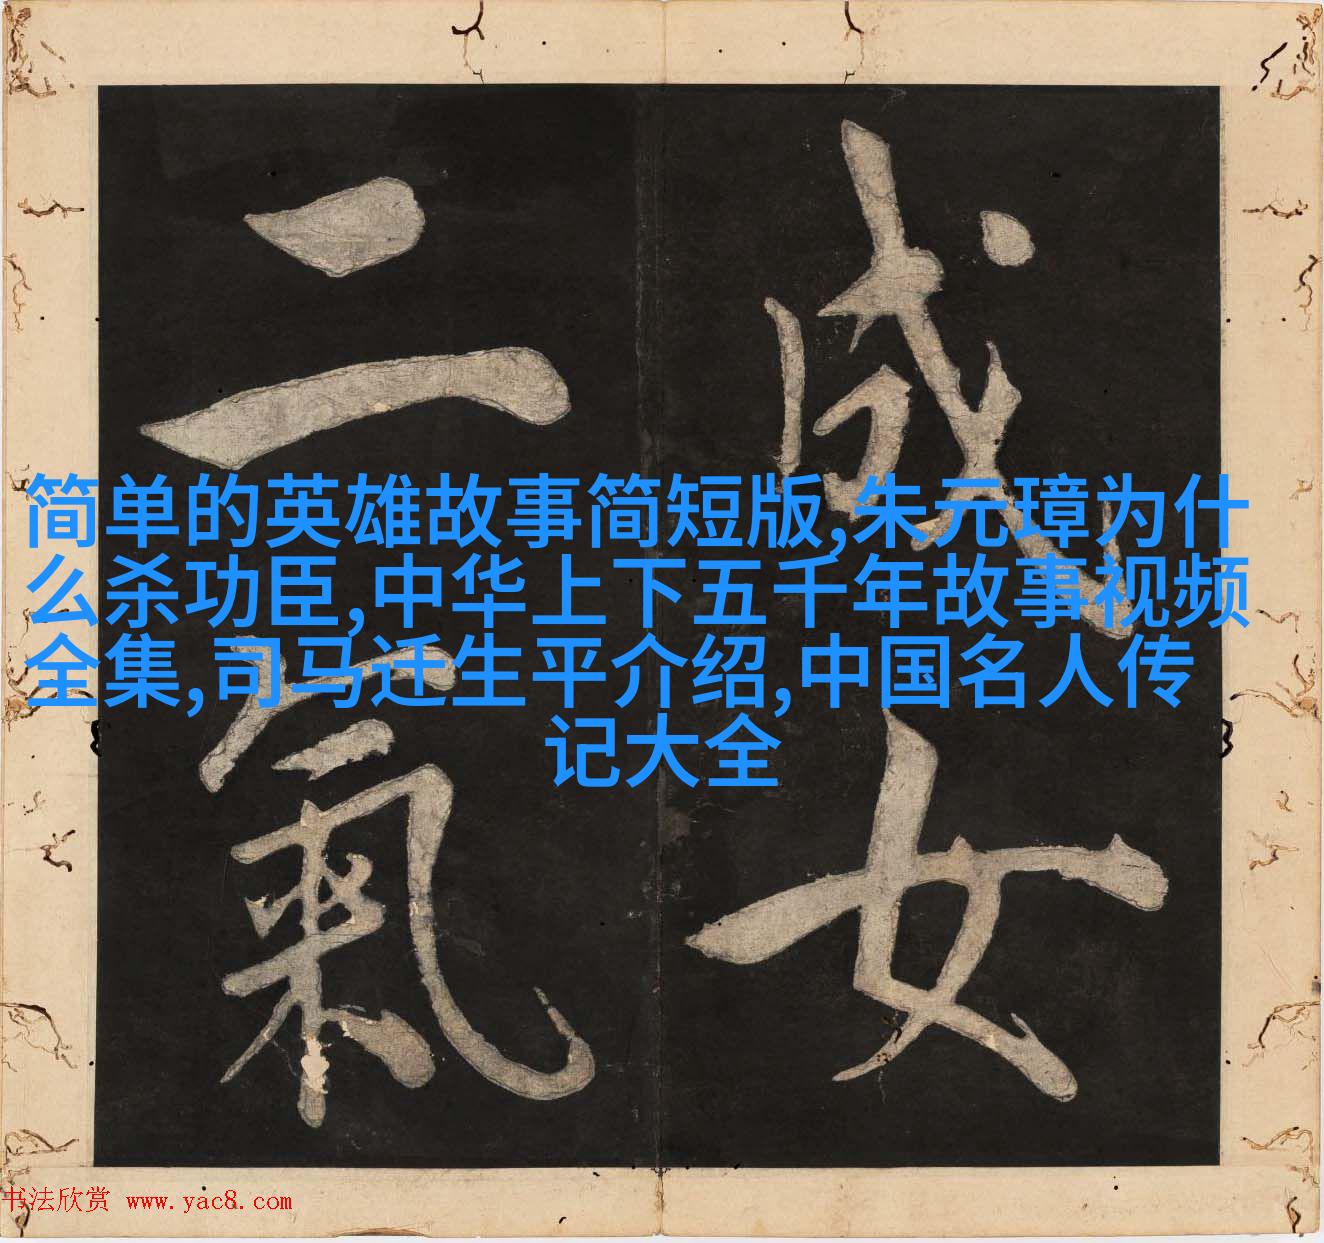 成女
二氣
简单的英雄故事简短版,朱元璋为什
么杀功臣,中华上下五千年故事视频
全集,司马迁生平介绍,中国名人传
记大全
书法欣赏 www.yac8.com